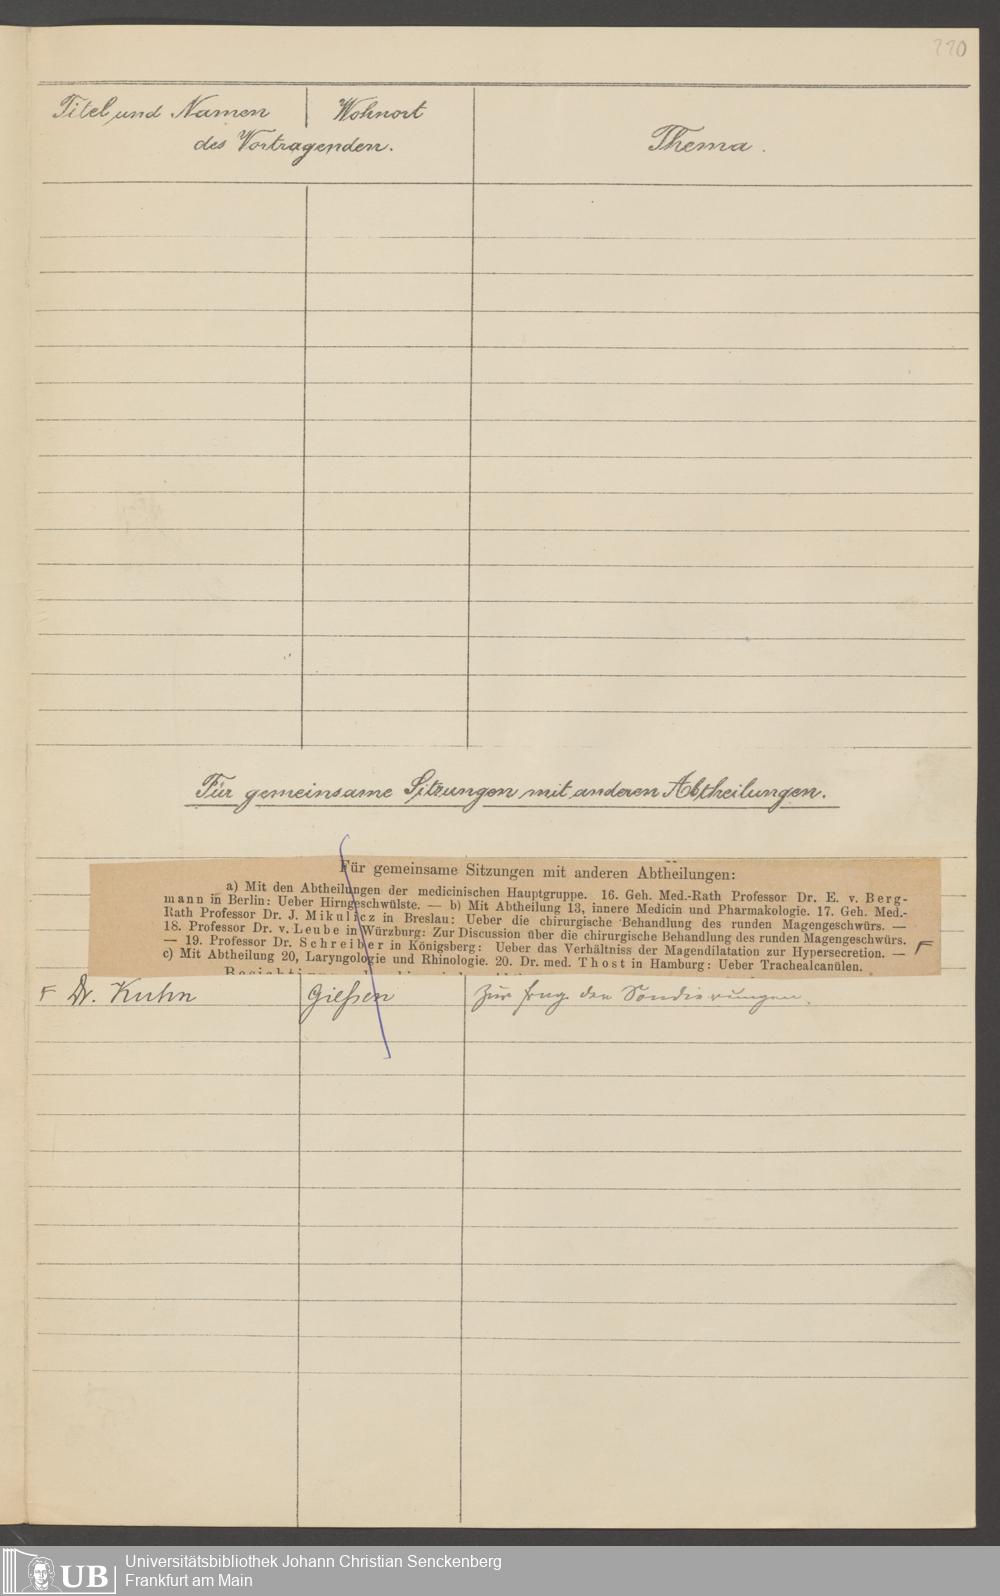 Titel und Namen
Wohnort
des Vortragenden.
Thema.
Für gemeinsame Sitzungen mit anderen Abtheilungen.
Für gemeinsame Sitzungen mit anderen Abtheilungen:
a) Mit den Abtheilungen der medicinischen Hauptgruppe. 16. Geh. Med.-Rath Professor Dr. E. v. Berg-
mann in Berlin: Ueber Hirngeschwülste. — b) Mit Abtheilung 13, innere Medicin und Pharmakologie. 17. Geh. Med.-
Rath Professor Dr. J. Mikulicz in Breslau: Ueber die chirurgische Behandlung des runden Magengeschwürs. —
18. Professor Dr. v. Leube in Würzburg: Zur Discussion über die chirurgische Behandlung des runden Magengeschwürs.
— 19. Professor Dr. Schreiber in Königsberg: Ueber das Verhältniss der Magendilatation zur Hypersecretion. —
c) Mit Abtheilung 20, Laryngologie und Rhinologie. 20. Dr. med. Thost in Hamburg: Ueber Trachealcanülen.
F
F Dr. Kuhn
Gießen
Zur Frage der Sondierungen.
UB
Universitätsbibliothek Johann Christian Senckenberg
Frankfurt am Main